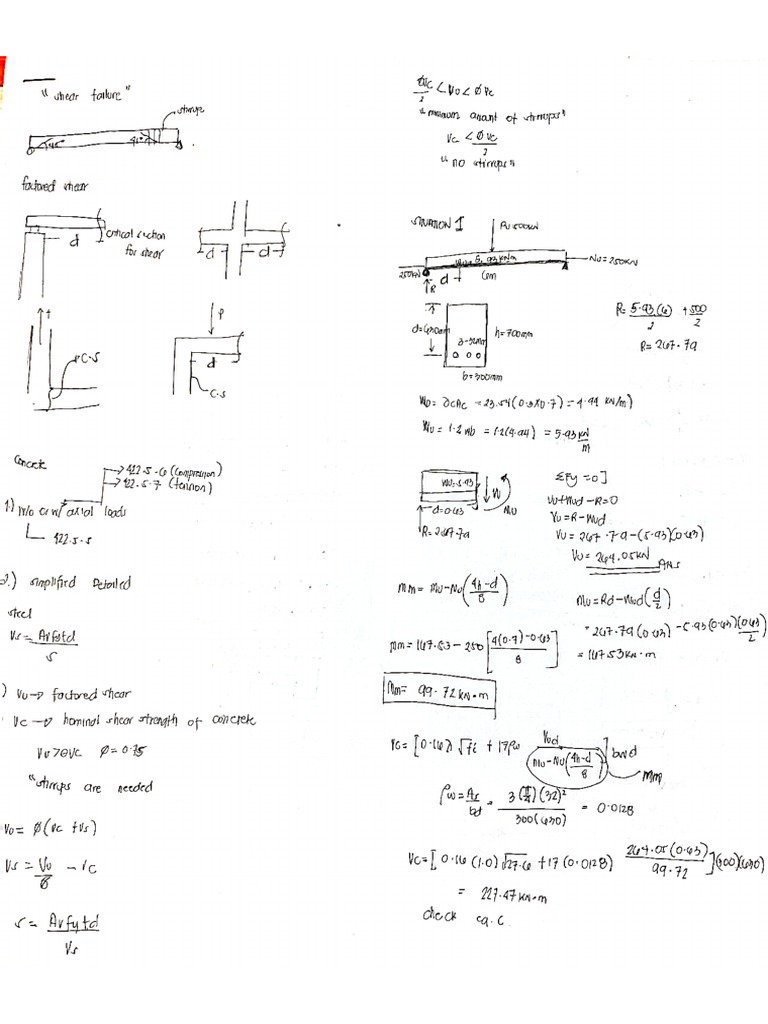 "shear failure"
stirrups
45°
45°
factored shear
d
critical section
for shear
d
d
T
C.S
P
d
C.S
Concrete
422.5.6 (compression)
422.5.7 (tension)
1.) w/o or w/ axial loads
422.5.5
2.) simplified Detailed
steel
Vs = Avfytd
s
) Vu → factored shear
Vc → nominal shear strength of concrete
Vu > ØVc Ø = 0.75
"stirrups are needed
Vu = Ø(Vc + Vs)
Vs = Vu/Ø - Vc
s = Avfytd
Vs
ØVc/2 < Vu < ØVc
"minimum amount of stirrups"
Vc < ØVc/2
"no stirrups"
SITUATION 1
Pu 500kN
Wu = 5.93 kN/m
Nu = 250KN
250KN
d
R
6m
d=630mm
3-32mm
h=700mm
b=300mm
R = 5.93(6)/2 + 500/2
R = 267.79
WD = γcAc = 23.54(0.3x0.7) = 4.94 KN/m)
Wu = 1.2 WD = 1.2(4.94) = 5.93 kN/m
Wu=5.93
d=0.63
R=267.79
Vu
Mu
ΣFy = 0]
Vu + Wud - R = 0
Vu = R - Wud
Vu = 267.79 - (5.93)(0.63)
Vu = 264.05kN
Ans
Mm = Mu - Nu(4h-d/8)
Mu = Rd - Wud(d/2)
= 267.79(0.63) - 5.93(0.63)(0.63)/2
= 167.53 KN.m
Mm = 167.53 - 250[4(0.7)-0.63/8]
Mm = 99.72 KN.m
Vc = [0.16λ√f'c + 17ρw Vud/Mu-Nu(4h-d/8)] bwd
Mm
ρw = As/bd = 3(π/4)(32)²/300(630) = 0.0128
Vc = [0.16(1.0)√27.6 + 17(0.0128) 264.05(0.63)/99.72](300)(630)
= 227.47 KN.m
check eq. C